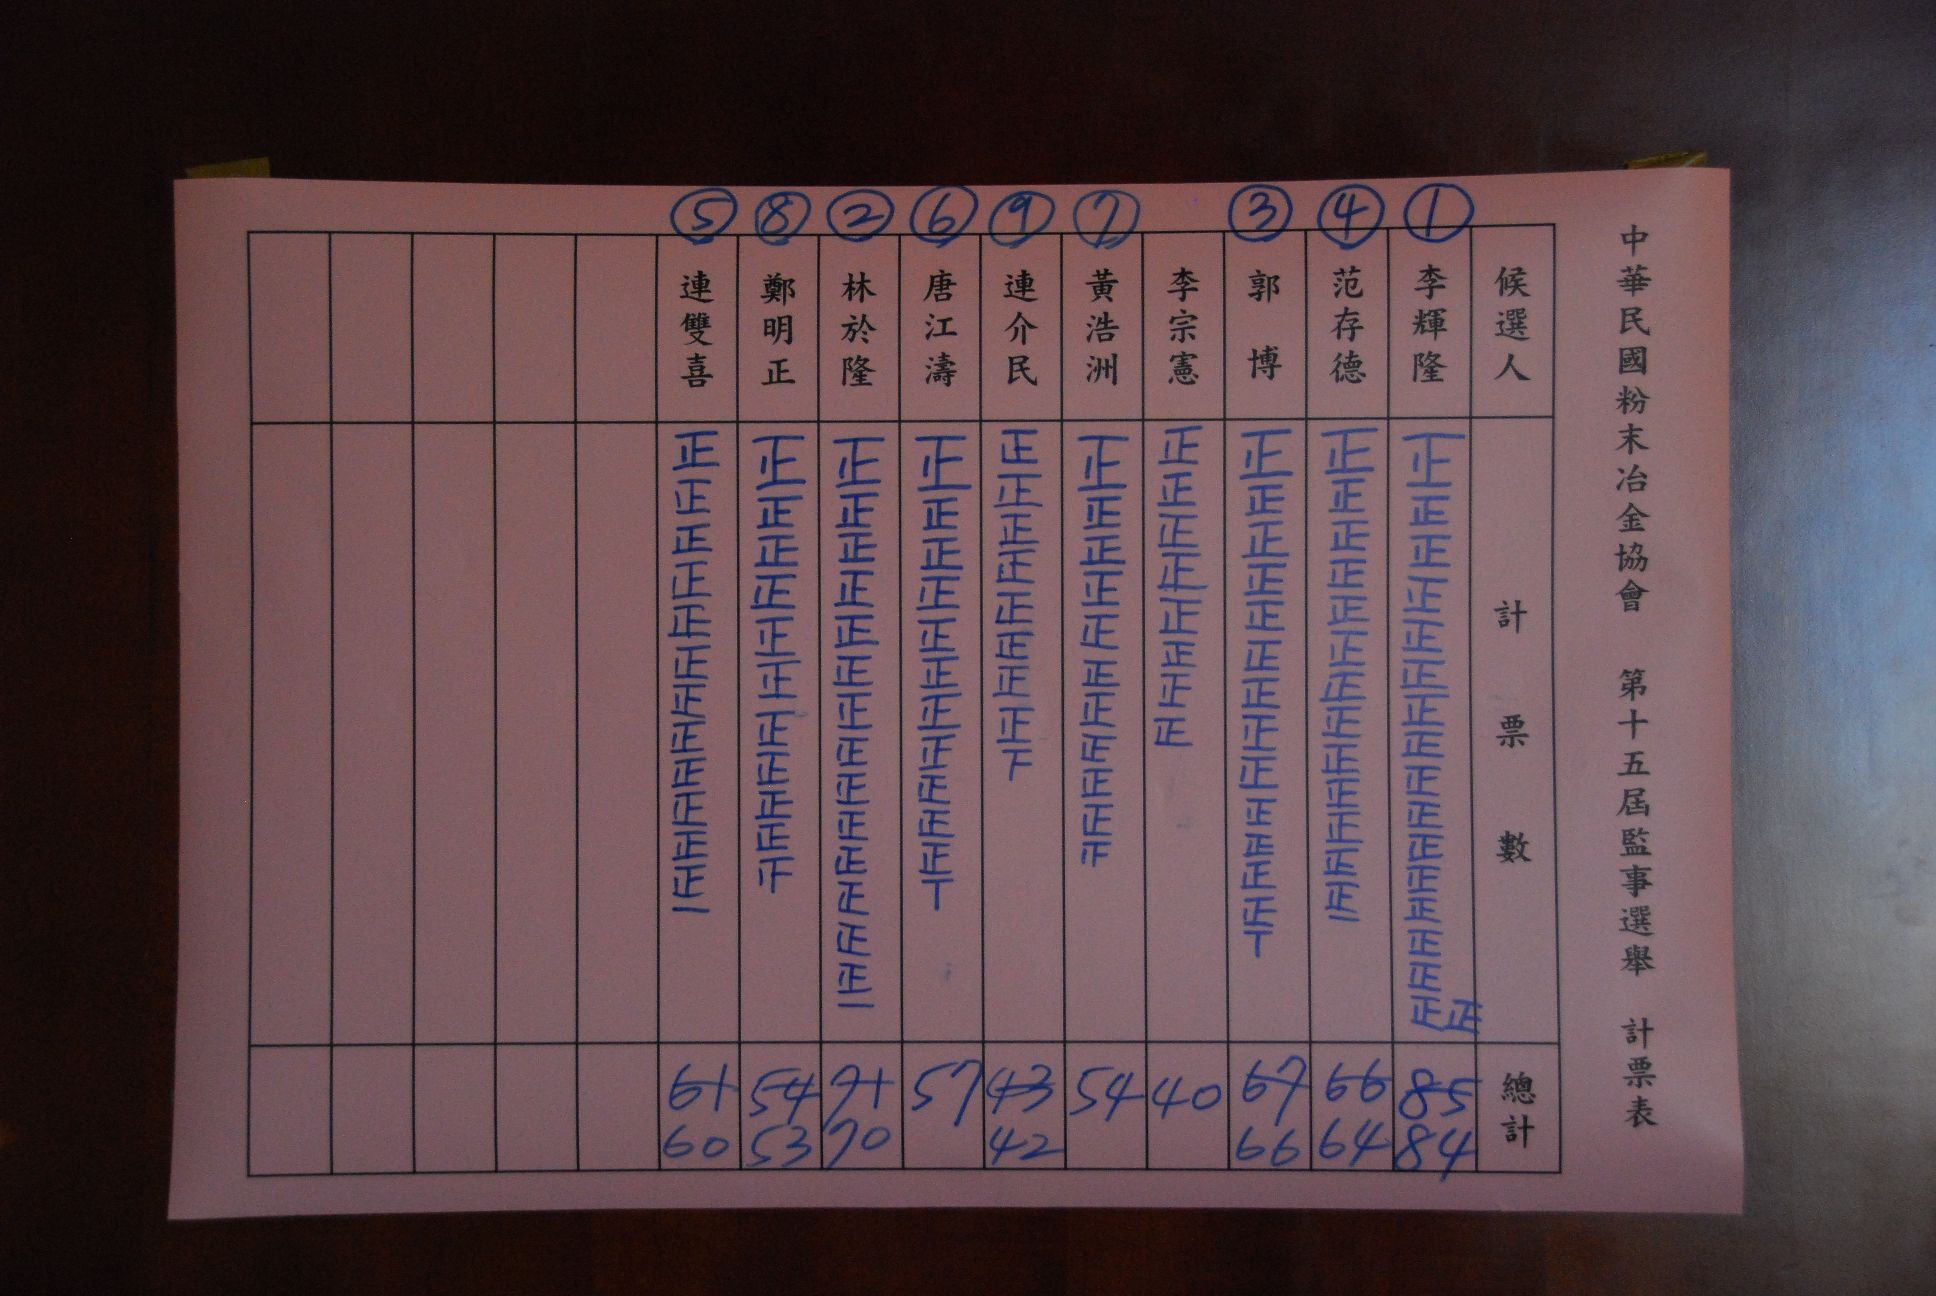 中華民國粉末冶金協會 第十五屆監事選舉 計票表
候選人 計票數 總計
① 李輝隆 正正正正正正正正正正正正正正正正正 85 84
④ 范存德 正正正正正正正正正正正正正一 66 64
③ 郭博 正正正正正正正正正正正正正丅 67 66
李宗憲 正正正正正正正正 40
⑦ 黃浩洲 正正正正正正正正正正 54
⑨ 連介民 正正正正正正正正下 43 42
⑥ 唐江濤 正正正正正正正正正正正丅 57
② 林於隆 正正正正正正正正正正正正正正一 71 70
⑧ 鄭明正 正正正正正正正正正正 54 53
⑤ 連雙喜 正正正正正正正正正正正正一 61 60